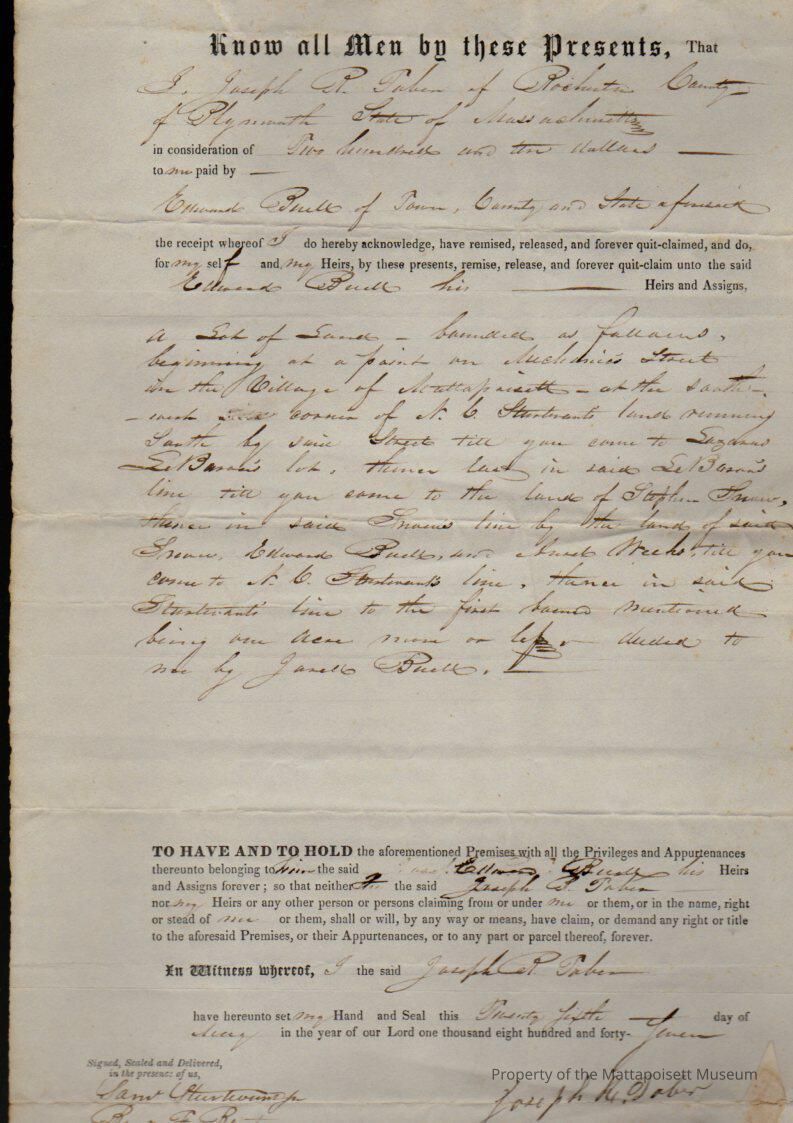 Know all Men by these Presents, That
I, Joseph R. Taber of Rochester County
of Plymouth State of Massachusetts
in consideration of Two hundred and ten dollars
to me paid by
Edward Buell of Town, County and State aforesaid
the receipt whereof I do hereby acknowledge, have remised, released, and forever quit-claimed, and do,
for my self and my Heirs, by these presents, remise, release, and forever quit-claim unto the said
Edward Buell his Heirs and Assigns,
a Lot of Land - bounded as follows,
beginning at a point on Mechanics Street
in the Village of Mattapoisett - at the south-
-west corner of N. C. Sturtevants land running
South by said Street till you come to Lazarus
LeBaron's lot, thence East in said LeBaron's
line till you come to the land of Stephen Snow,
thence in said Snow's line by the land of said
Snow, Edward Buell, and Weeks, till you
come to N. C. Sturtevant's line, thence in said
Sturtevants' line to the first bound mentioned
being one acre more or less deeded to
me by Buell.
TO HAVE AND TO HOLD the aforementioned Premises with all the Privileges and Appurtenances
thereunto belonging to him the said Edward Buell his Heirs
and Assigns forever; so that neither the said Joseph R Taber
nor my Heirs or any other person or persons claiming from or under me or them, or in the name, right
or stead of me or them, shall or will, by way or means, have claim, or demand any right or title
to the aforesaid Premises, or their Appurtenances, or to any part or parcel thereof, forever.
In Witness whereof, I the said Joseph R. Taber
have hereunto set my Hand and Seal this Twenty day of
in the year of our Lord one thousand eight hundred and forty-Seven
Signed, Sealed and Delivered,
in the presence of us,
Property of the Mattapoisett Museum
Joseph R. Taber